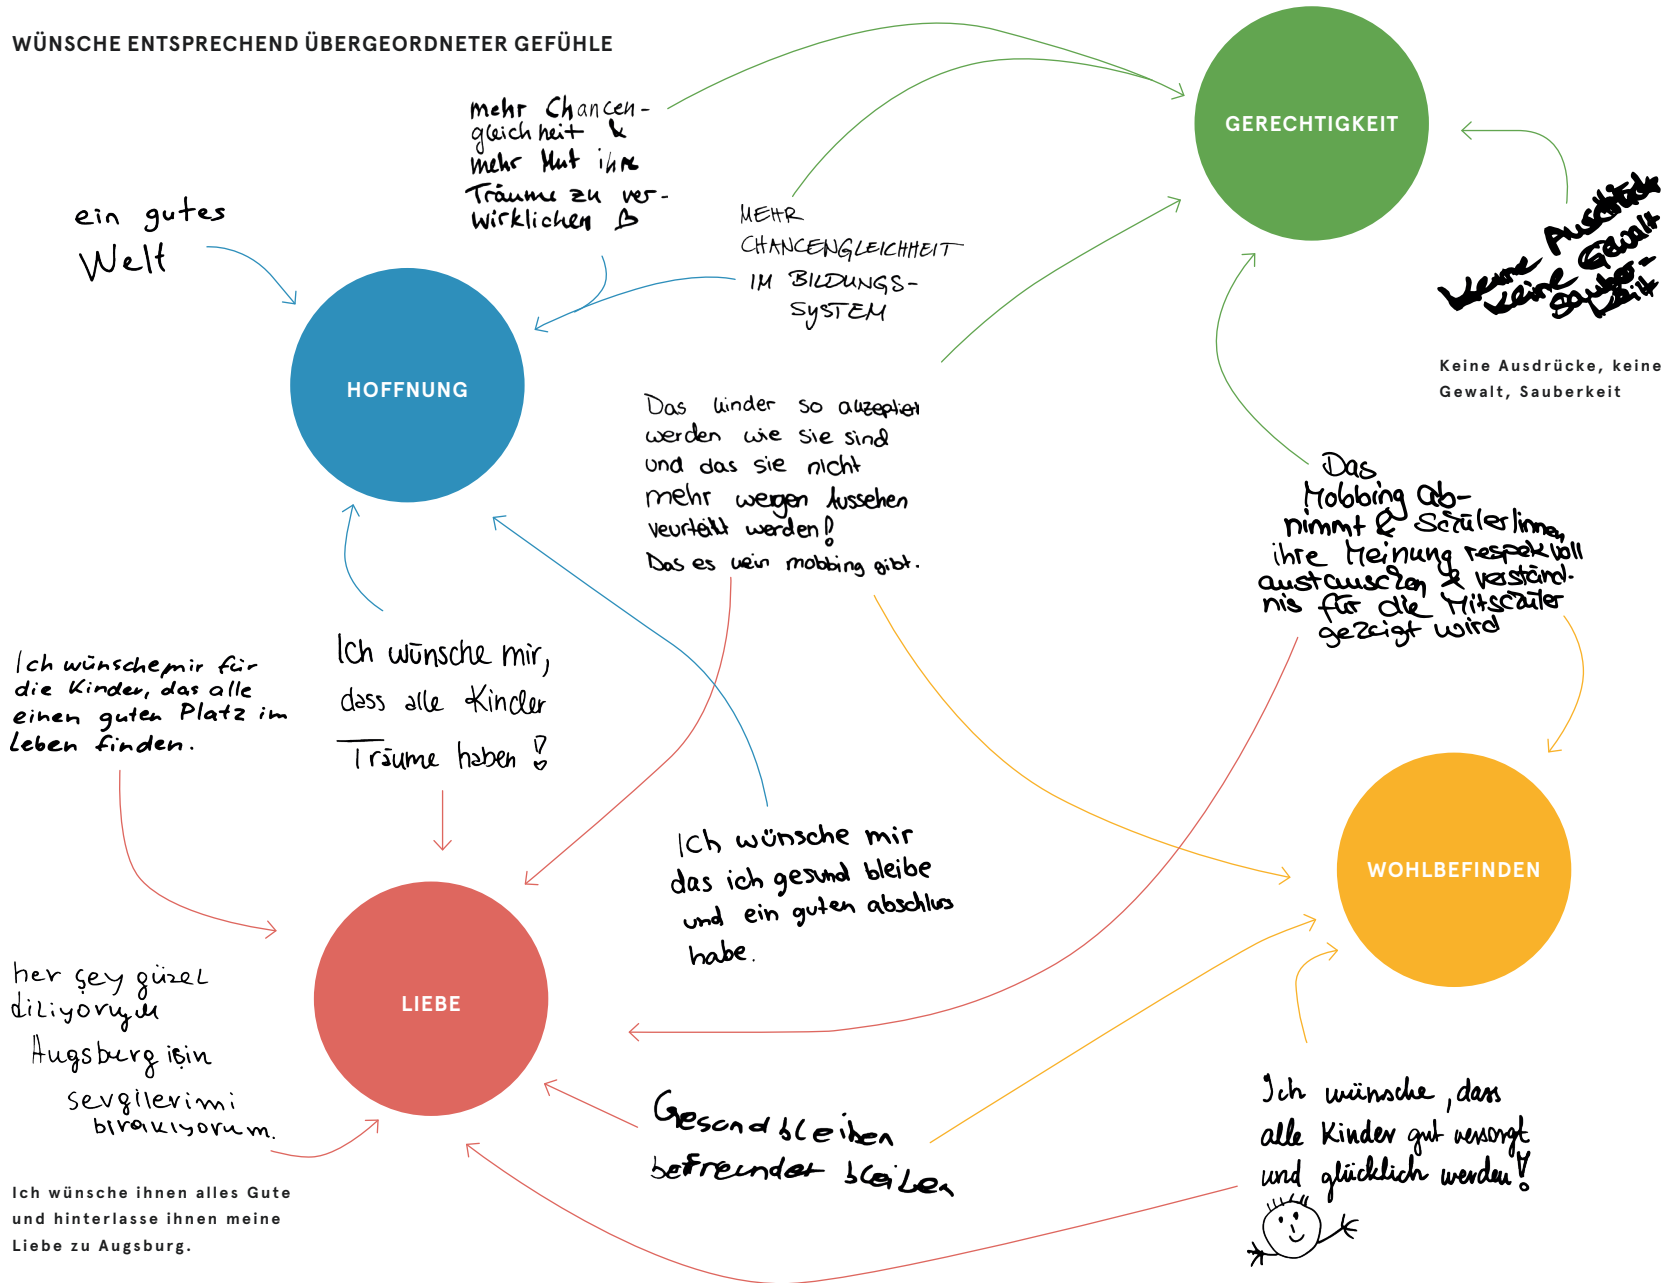 WÜNSCHE ENTSPRECHEND ÜBERGEORDNETER GEFÜHLE
mehr Chancen-
gleichheit &
mehr Mut ihre
Träume zu ver-
wirklichen
GERECHTIGKEIT
ein gutes
Welt
MEHR
CHANCENGLEICHHEIT
IM BILDUNGS-
SYSTEM
Keine Ausdrücke
keine Gewalt
Sauber-
keit
Keine Ausdrücke, keine
Gewalt, Sauberkeit
HOFFNUNG
Das kinder so akzeptiert
werden wie sie sind
und das sie nicht
mehr wergen Aussehen
veurteilt werden!
Das es kein mobbing gibt.
Das
Mobbing ab-
nimmt & Schüler/innen
ihre Meinung respekvoll
austauschen & verständ-
nis für die Mitschüler
gezeigt wird
Ich wünsche mir für
die Kinder, das alle
einen guten Platz im
Leben finden.
Ich wünsche mir,
dass alle Kinder
Träume haben!
Ich wünsche mir
das ich gesund bleibe
und ein guten abschluss
habe.
WOHLBEFINDEN
LIEBE
her şey güzel
diliyorum
Augsburg için
sevgilerimi
bırakıyorum.
Ich wünsche ihnen alles Gute
und hinterlasse ihnen meine
Liebe zu Augsburg.
Gesond bleiben
befreundet bleiben
Ich wünsche, dass
alle Kinder gut versorgt
und glücklich werden!